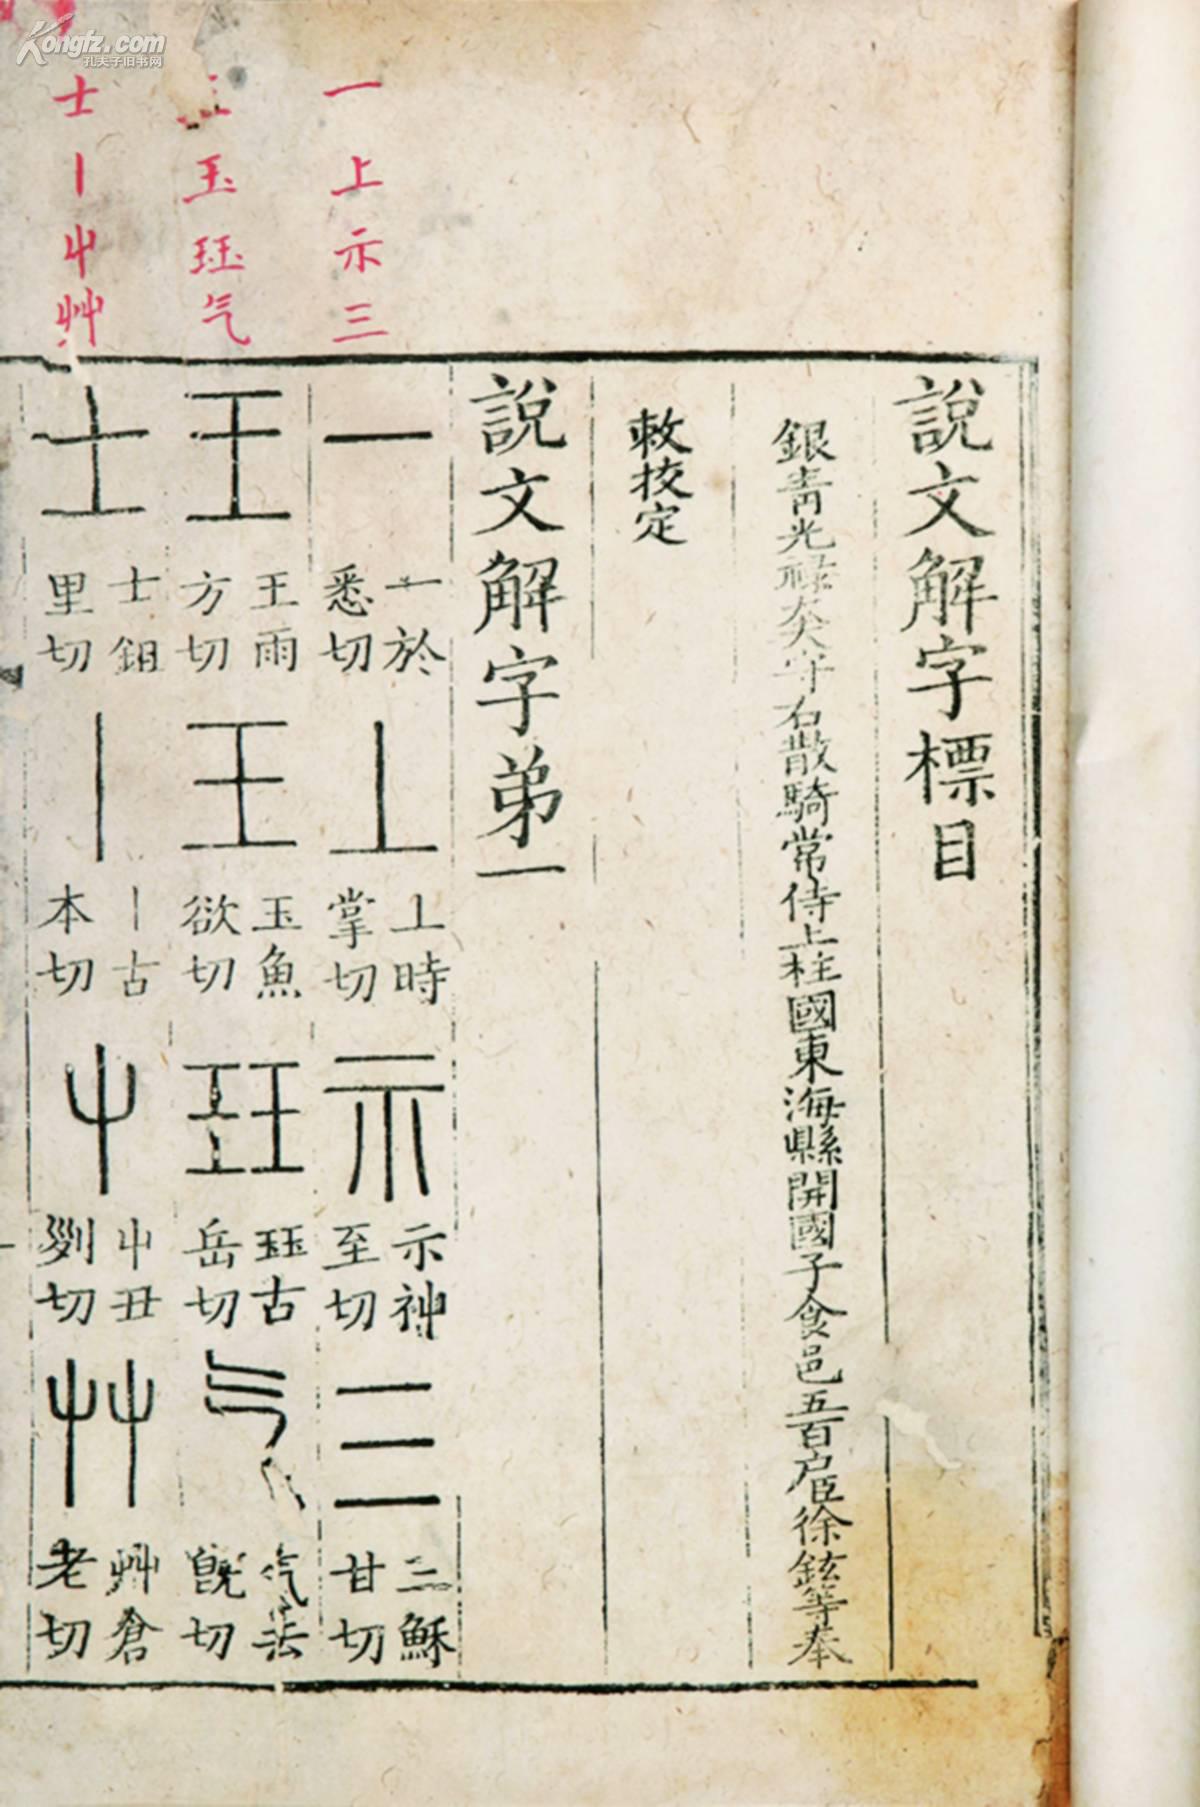 Kongfz.com
孔夫子旧书网
一上示三
玉玨气
士丨屮艸
說文解字標目
銀青光祿大夫守右散騎常侍上柱國東海縣開國子食邑五百戶臣徐鉉等奉
敕挍定
說文解字弟一
一 一於悉切 丄 丄時掌切 示 示神至切 三 三穌甘切
王 王雨方切 玉 玉魚欲切 玨 玨古岳切 气 气法旣切
士 士鉏里切 丨 丨古本切 屮 屮丑列切 艸 艸倉老切